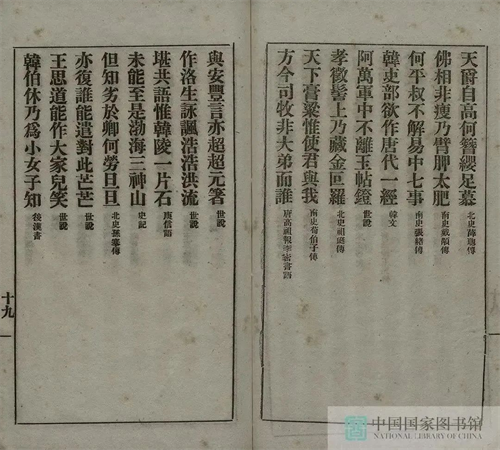 天爵自高何簪纓足慕 北史薛聰傳
佛相非瘦乃臂胛太肥 南史戴顒傳
何平叔不解易中七事 南史張緒傳
韓吏部欲作唐代一經 韓文
阿萬軍中不離玉帖鐙 世說
孝徵髻上乃藏金叵羅 北史祖珽傳
天下膏粱惟使君與我 南史荀伯子傳
方今司牧非大弟而誰 唐高祖報李密書語
與安豐言亦超超元箸 世說
作洛生詠諷浩浩洪流 世說
堪共語惟韓陵一片石 庾信語
未能至是渤海三神山 史記
但知劣於卿何勞旦旦
亦復誰能遣對此芒芒 世說
王思道能作大家兒笑 世說
韓伯休乃為小女子知 後漢書
十九
中国国家图书馆
NATIONAL LIBRARY OF CHINA